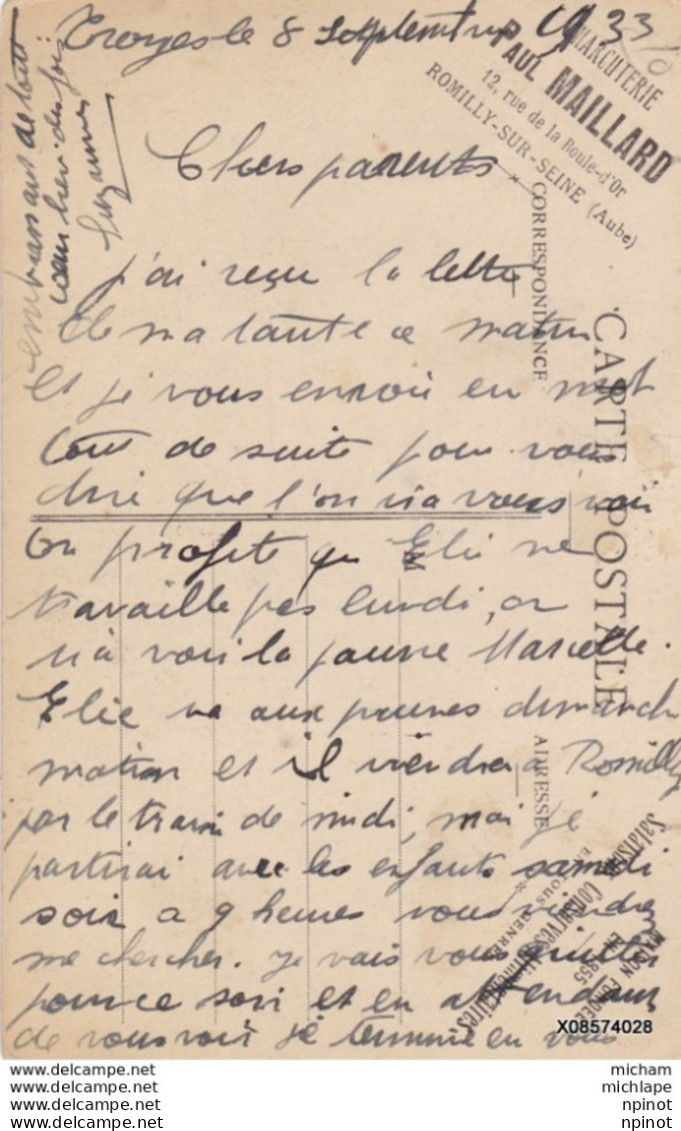 Troyes le 8 septembre 1933
CHARCUTERIE
PAUL MAILLARD
12, rue de la Boule-d'Or
ROMILLY-SUR-SEINE (Aube)
Chers parents
j'ai reçu la lettre
de ma tante ce matin
et je vous envoie en mot
tout de suite pour vous
dire que l'on ira vous voir
on profite que Elie ne
travaille pas lundi, on
ira voir la pauvre Marcelle.
Elie va aux prunes dimanche
matin et il viendra a Romilly
par le train de midi, mai je
partirai avec les enfants samedi
soir a 9 heures vous viendrez
me chercher. je vais vous quitter
pour ce soir et en attendant
de vous voir je termine en vous
embrassant de tout
cœur bien des fois
Suzanne
CARTE POSTALE
CORRESPONDANCE
ADRESSE
M
Salaisons
Conserves Alimentaires
EN TOUS GENRES
MAISON FONDÉE
EN 1855
X08574028
www.delcampe.net micham
www.delcampe.net michlape
www.delcampe.net npinot
www.delcampe.net npinot